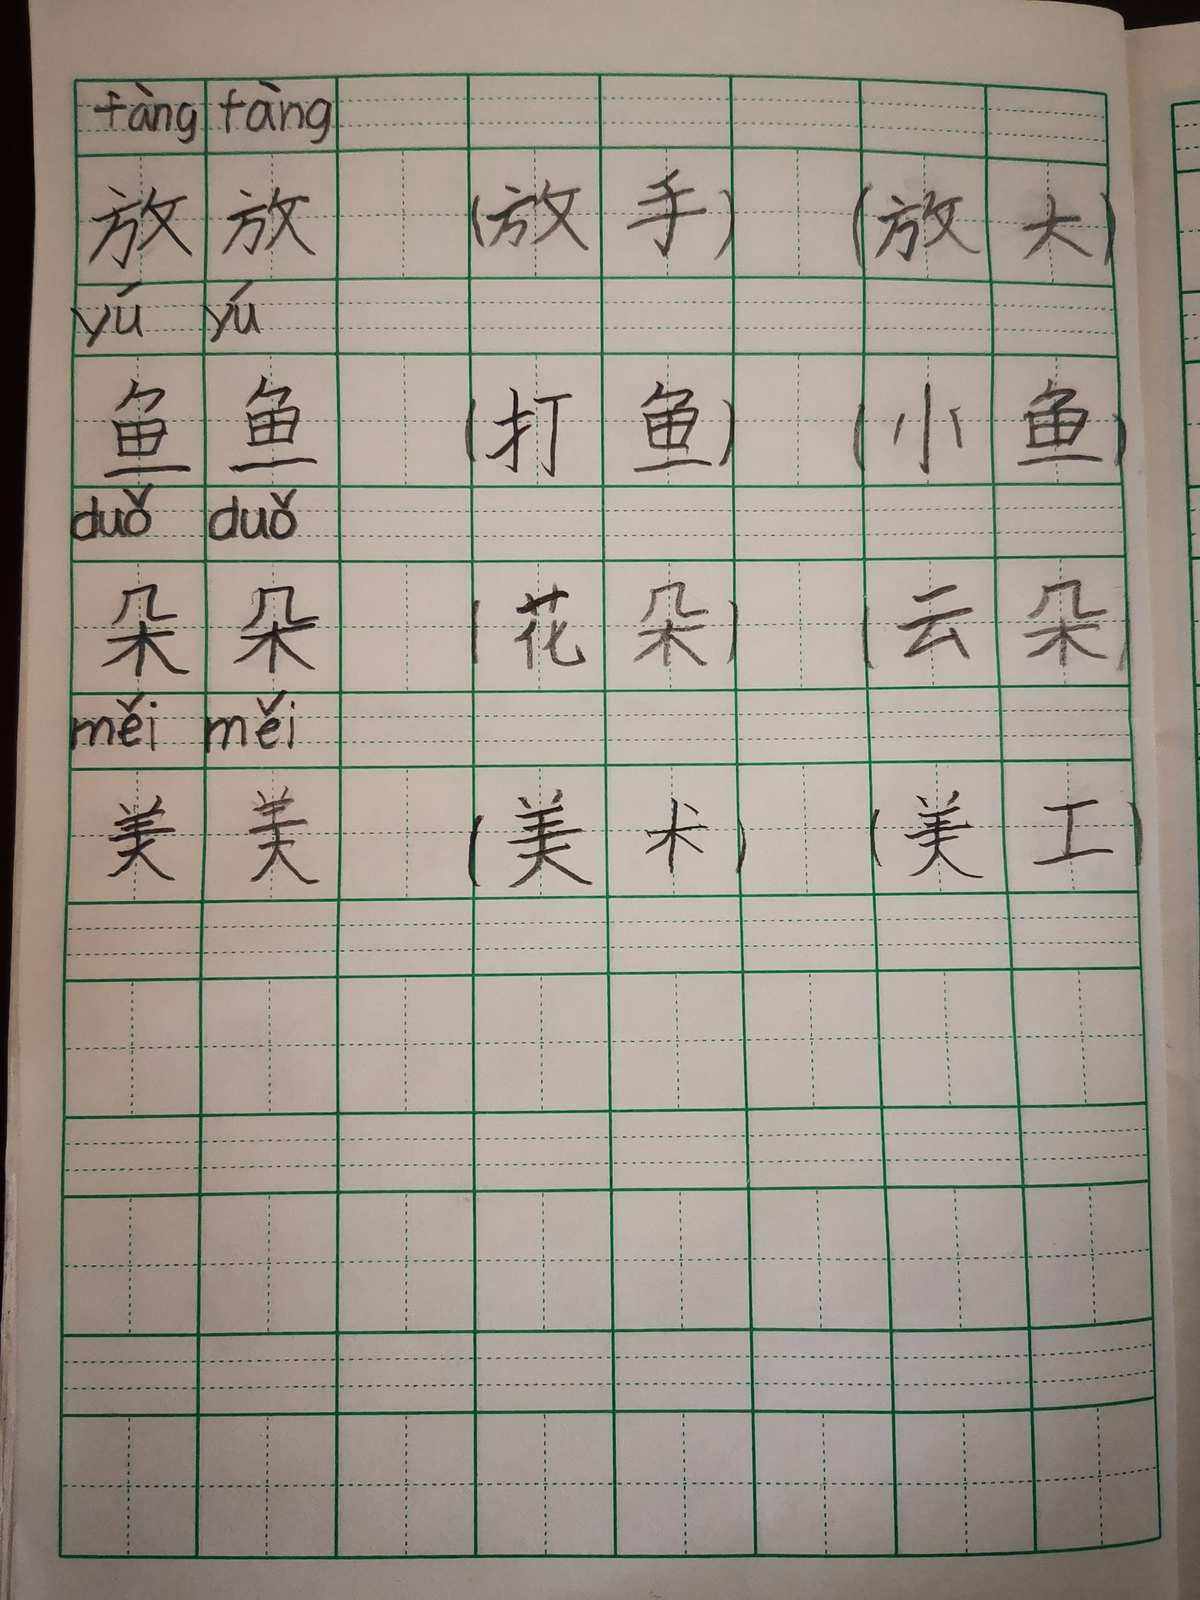 fàng fàng
放 放 (放 手) (放 大)
yú yú
鱼 鱼 (打 鱼) (小 鱼)
duǒ duǒ
朵 朵 (花 朵) (云 朵)
měi měi
美 美 (美 术) (美 工)